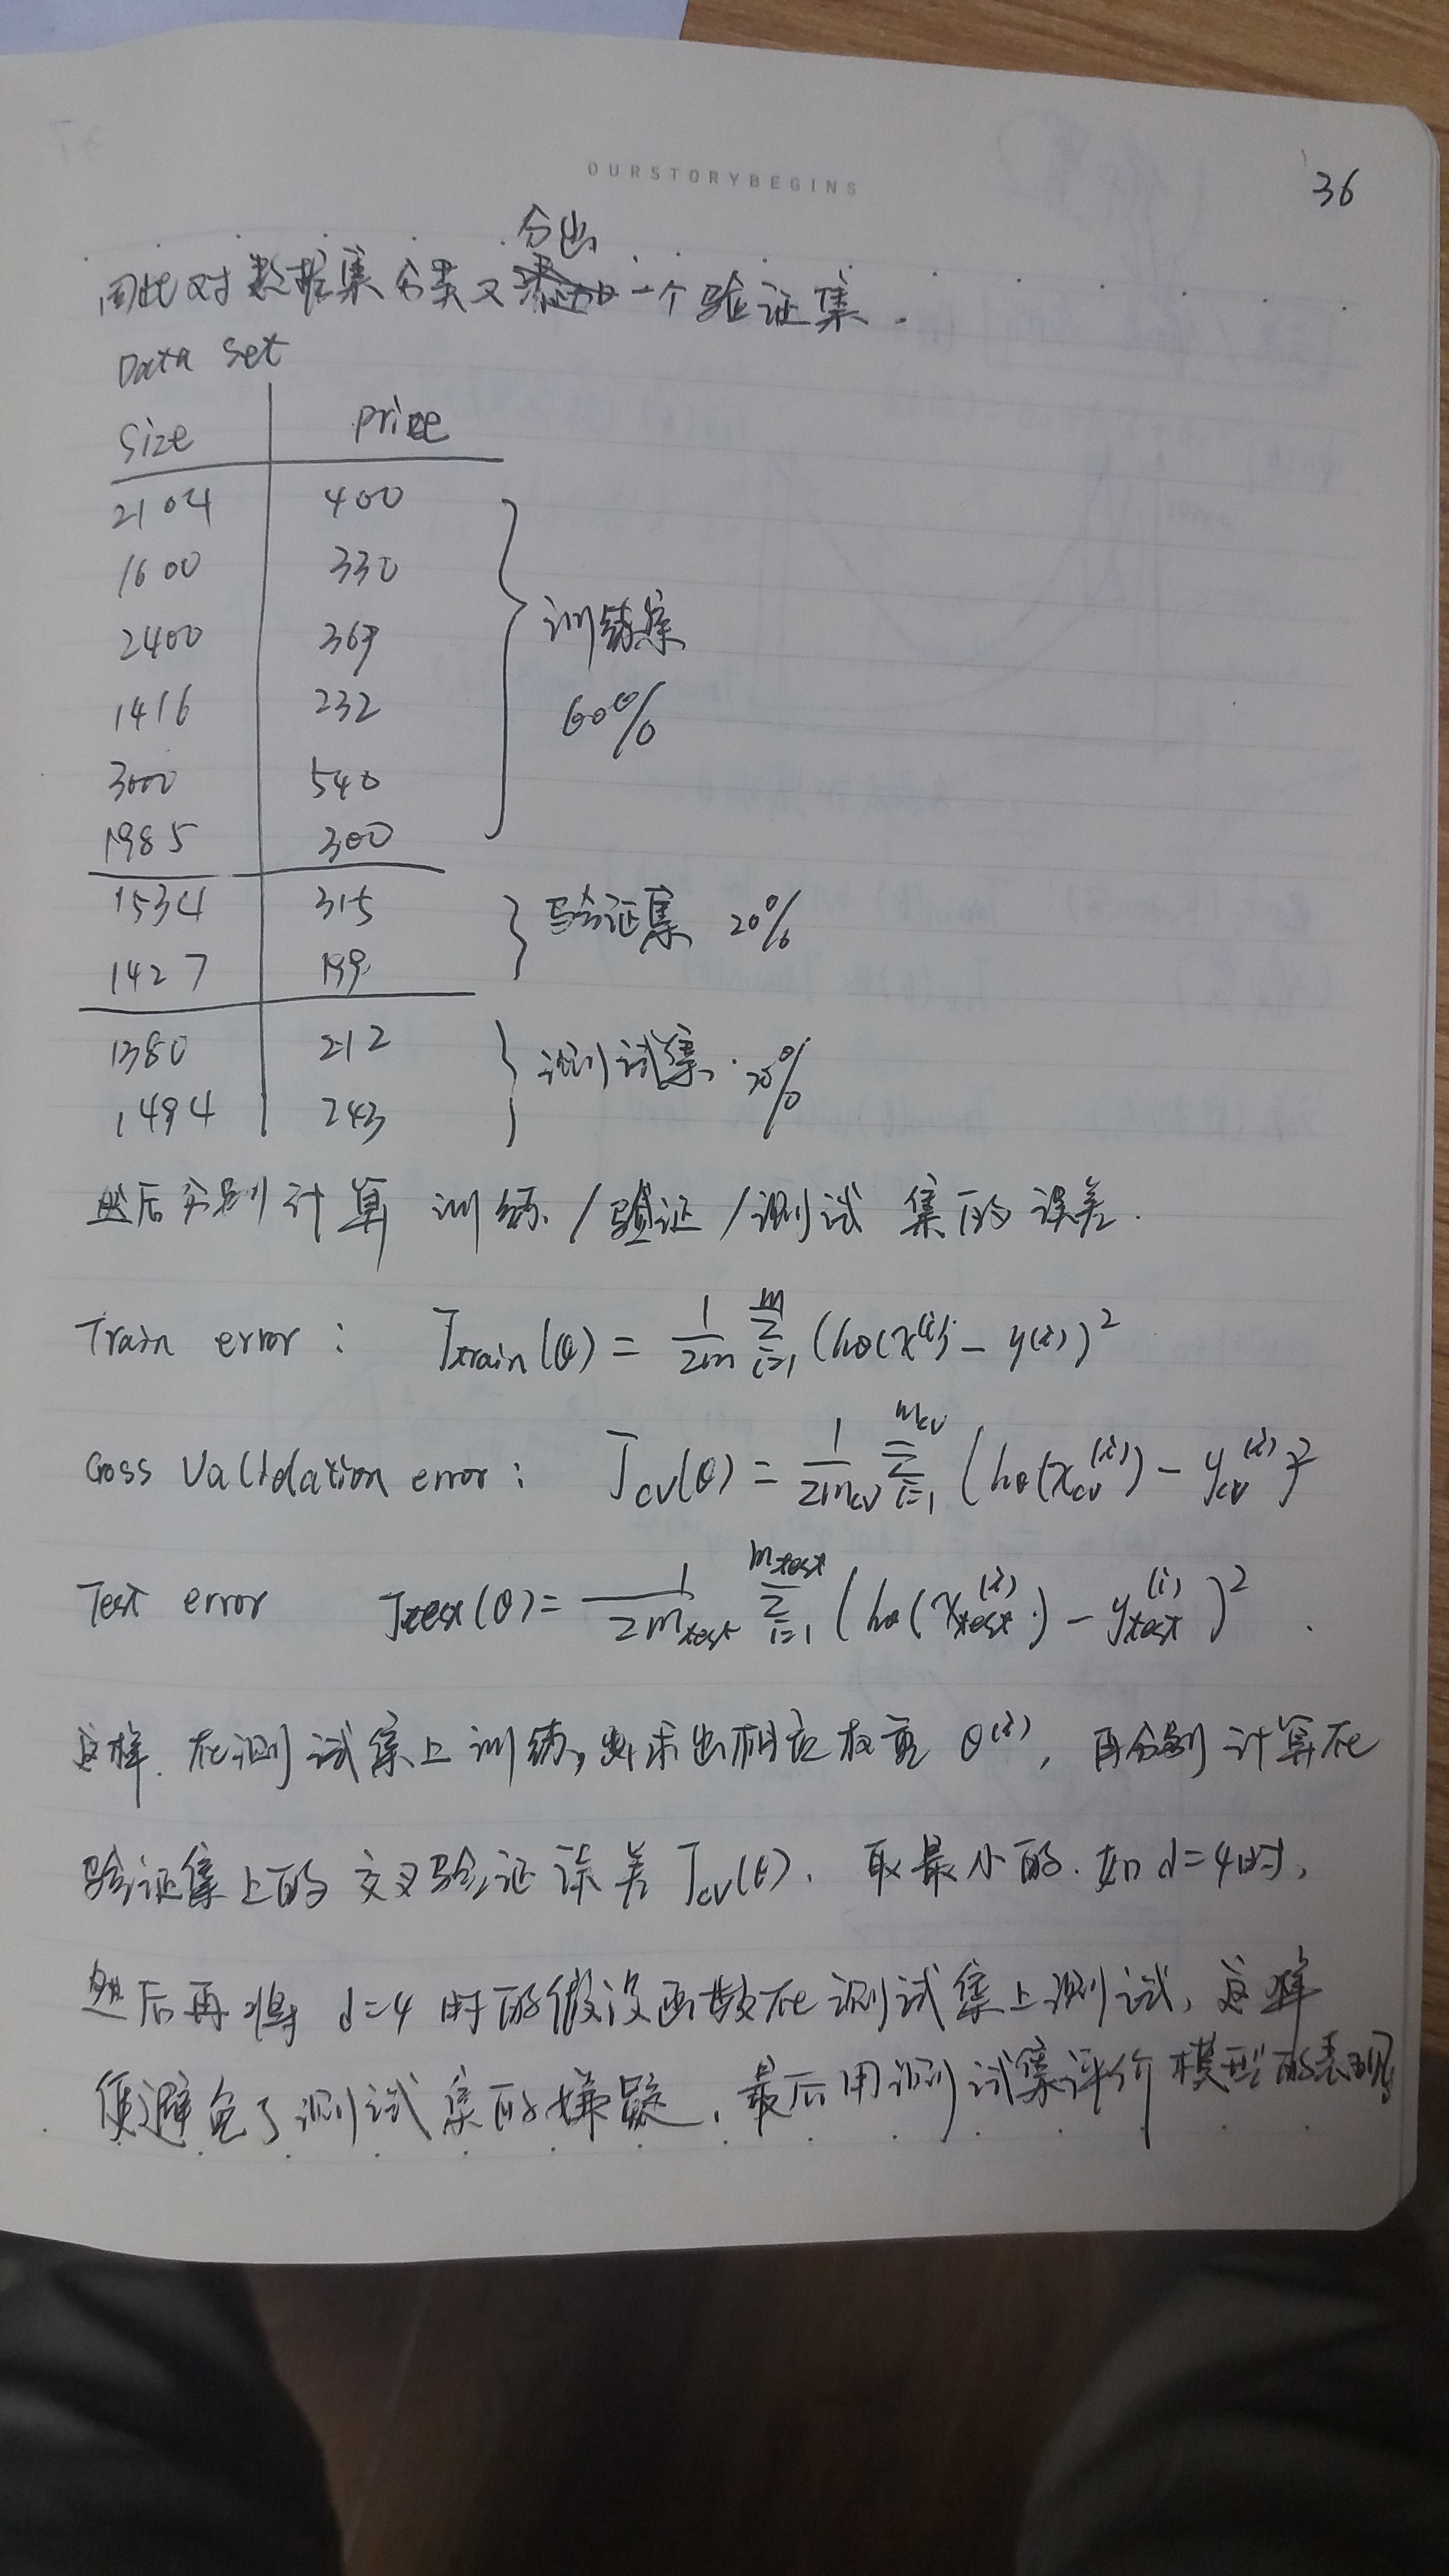 OURSTORYBEGINS
36
因此对数据集分类又分出一个验证集.
Data set
Size Price
2104 400
1600 330
2400 369
1416 232
3000 540
1985 300
训练集
60%
1534 315
1427 199
验证集 20%
1380 212
1494 243
测试集. 20%
然后分别计算 训练/验证/测试 集的误差.
Train error: Jtrain(θ) = 1/2m Σ_{i=1}^{m} (hθ(x^(i)) - y^(i))^2
Cross Validation error: Jcv(θ) = 1/2m_cv Σ_{i=1}^{m_cv} (hθ(x_cv^(i)) - y_cv^(i))^2
Test error Jtest(θ) = 1/2m_test Σ_{i=1}^{m_test} (hθ(x_test^(i)) - y_test^(i))^2
这样. 在测试集上训练,求出相应权重 θ^(i), 再分别计算在
验证集上的交叉验证误差 Jcv(θ). 取最小的. 如 d=4时,
然后再将 d=4 时的假设函数在测试集上测试, 这样
便避免了测试集的嫌疑, 最后用测试集评价模型的表现